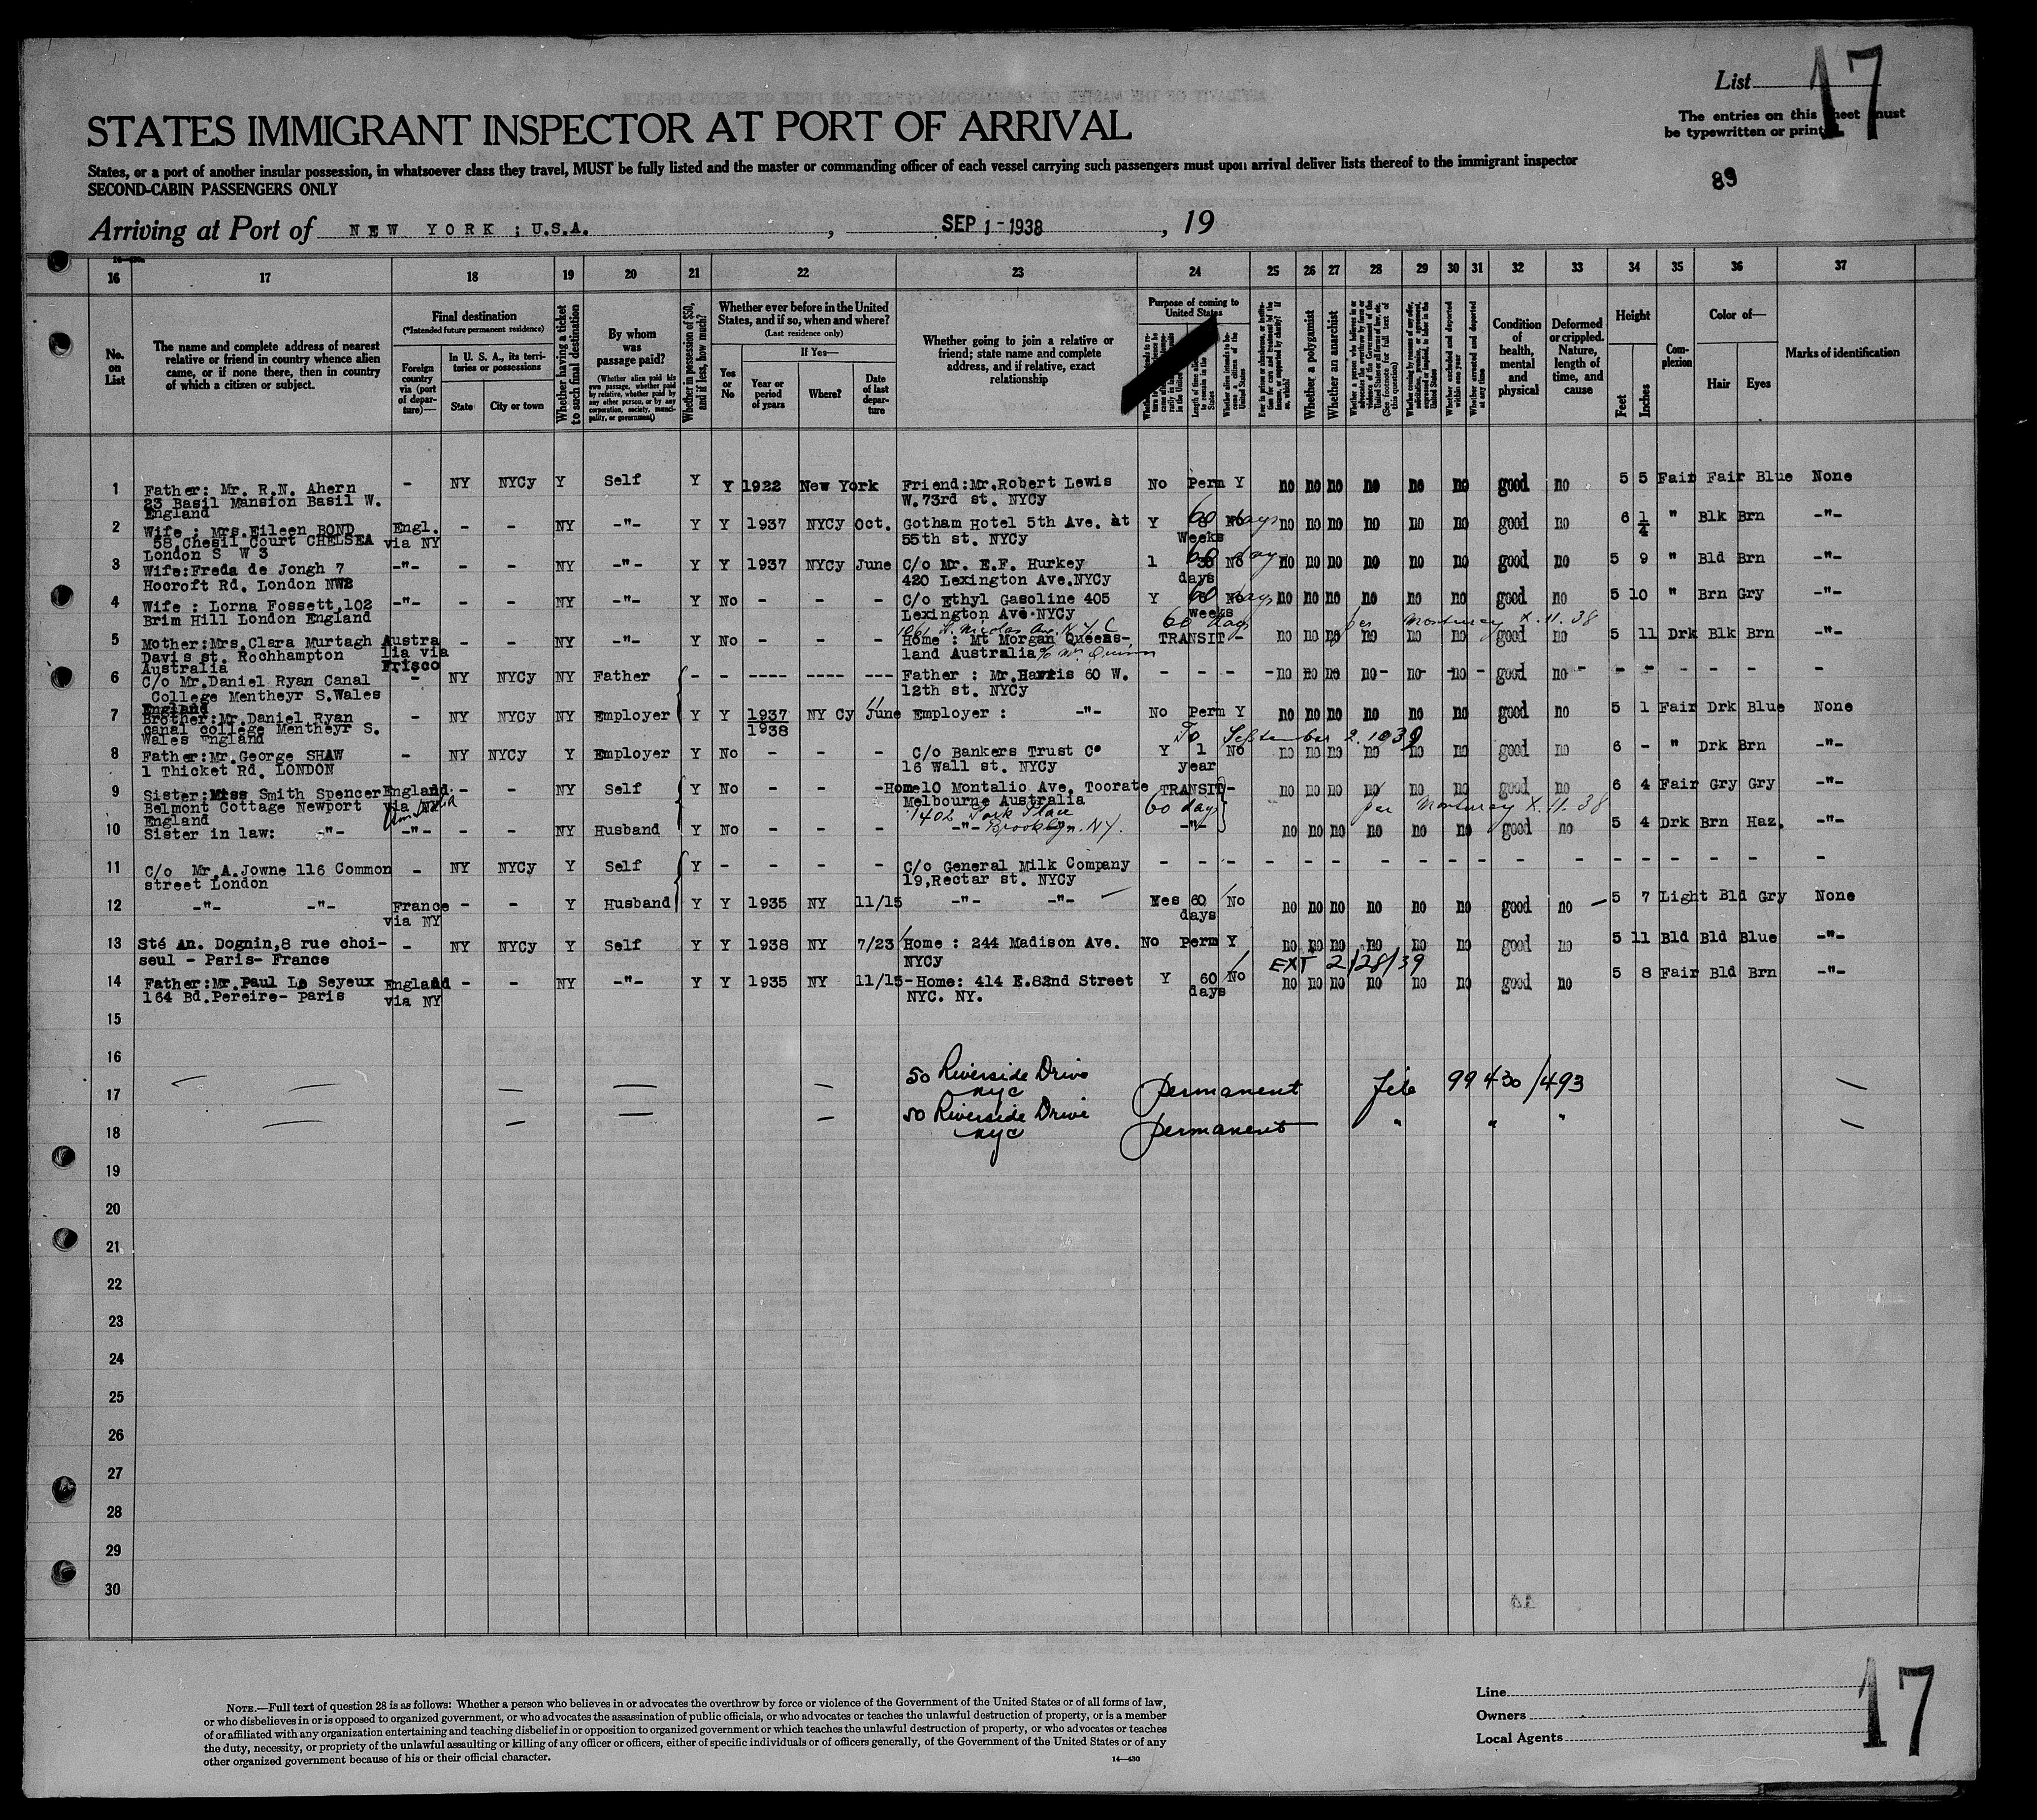 List 17
The entries on this sheet must
be typewritten or printed
STATES IMMIGRANT INSPECTOR AT PORT OF ARRIVAL
States, or a port of another insular possession, in whatsoever class they travel, MUST be fully listed and the master or commanding officer of each vessel carrying such passengers must upon arrival deliver lists thereof to the immigrant inspector
SECOND-CABIN PASSENGERS ONLY
89
Arriving at Port of NEW YORK ; U.S.A. , SEP 1-1938 , 19
16 17 18 19 20 21 22 23 24 25 26 27 28 29 30 31 32 33 34 35 36 37
No. on List
The name and complete address of nearest relative or friend in country whence alien came, or if none there, then in country of which a citizen or subject.
Final destination
(*Intended future permanent residence)
Foreign country via (port of departure)—
In U. S. A., its territories or possessions
State City or town
Whether having a ticket to such final destination
By whom was passage paid?
(Whether alien paid his own passage, whether paid by relative, whether paid by any other person, or by any corporation, society, municipality, or government)
Whether in possession of $50, and if less, how much?
Whether ever before in the United States, and if so, when and where?
(Last residence only)
Yes or No
If Yes—
Year or period of years Where? Date of last departure
Whether going to join a relative or friend; state name and complete address, and if relative, exact relationship
Purpose of coming to United States
Whether a polygamist
Whether an anarchist
Condition of health, mental and physical
Deformed or crippled. Nature, length of time, and cause
Height
Feet Inches
Complexion
Color of—
Hair Eyes
Marks of identification
1 Father: Mr. R.N. Ahern - NY NYCy Y Self Y Y 1922 New York Friend:Mr.Robert Lewis No Perm Y no no no no no no good no 5 5 Fair Fair Blue None
23 Basil Mansion Basil W. W.73rd st. NYCy
England
2 Wife : Mrs.Eileen BOND Engl. - - NY -"- Y Y 1937 NYCy Oct. Gotham Hotel 5th Ave. at Y 60 days No no no no no no no good no 6 1/4 " Blk Brn -"-
58,Chesil Court CHELSEA via NY 55th st. NYCy Weeks
London S W 3
3 Wife:Freda de Jongh 7 -"- - - NY -"- Y Y 1937 NYCy June C/o Mr. E.F. Hurkey 1 60 days No no no no no no no good no 5 9 " Bld Brn -"-
Hocroft Rd. London NW2 420 Lexington Ave.NYCy days
4 Wife : Lorna Fossett,102 -"- - - NY -"- Y No - - - C/o Ethyl Gasoline 405 Y 60 days No no no no no no no good no 5 10 " Brn Gry -"-
Brim Hill London England Lexington Ave.NYCy weeks
60 days per Monterey X.11.38
5 Mother:Mrs.Clara Murtagh Austra - - NY -"- Y No - - - Home : Mt Morgan Queens- TRANSIT - no no no no no no good no 5 11 Drk Blk Brn -"-
Davis st. Rochhampton lia via land Australia
Australia Frisco
6 C/o Mr.Daniel Ryan Canal - NY NYCy NY Father - - ---- ---- --- Father : Mr.Harris 60 W. - - - no no no no no no good no - - - - - -
College Mentheyr S.Wales 12th st. NYCy
England
7 Brother:Mr.Daniel Ryan - NY NYCy NY Employer Y Y 1937 NY Cy June Employer : -"- No Perm Y no no no no no no good no 5 1 Fair Drk Blue None
canal college Mentheyr S. 1938
Wales England
To September 2. 1939
8 Father:Mr.George SHAW - NY NYCy Y Employer Y No - - - C/o Bankers Trust Co Y 1 No no no no no no no good no 6 - " Drk Brn -"-
1 Thicket Rd. LONDON 16 Wall st. NYCy year
9 Sister:Miss Smith Spencer England - - NY Self Y No - - - Home10 Montalio Ave. Toorate TRANSIT - no no no no no no good no 6 4 Fair Gry Gry -"-
Belmont Cottage Newport via NY Melbourne Australia 60 days per Monterey X.11.38
England 1402 Park Place
10 Sister in law: -"- -"- NY Husband Y No - - - -"- Brooklyn.NY. -"- no no no no no no good no 5 4 Drk Brn Haz. -"-
11 C/o Mr.A.Jowne 116 Common - NY NYCy Y Self Y - - - - C/o General Milk Company - - - - - - - - - - - - - - - - - -
street London 19,Rectar st. NYCy
12 -"- -"- France - - Y Husband Y Y 1935 NY 11/15 -"- -"- Yes 60 No no no no no no no good no 5 7 Light Bld Gry None
via NY days
13 Sté An. Dognin,8 rue choi- - NY NYCy Y Self Y Y 1938 NY 7/23 Home : 244 Madison Ave. No Perm Y no no no no no no good no 5 11 Bld Bld Blue -"-
seul - Paris- France NYCy EXT 2/28/39
14 Father:Mr.Paul Le Seyeux England - - NY -"- Y Y 1935 NY 11/15 -Home: 414 E.82nd Street Y 60 No no no no no no no good no 5 8 Fair Bld Brn -"-
164 Bd.Pereire- Paris via NY NYC. NY. days
15
16
50 Riverside Drive
17 nyc permanent file 99430/493
50 Riverside Drive
18 nyc permanent " " "
19
20
21
22
23
24
25
26
27
28
29
30
NOTE.—Full text of question 28 is as follows: Whether a person who believes in or advocates the overthrow by force or violence of the Government of the United States or of all forms of law,
or who disbelieves in or is opposed to organized government, or who advocates the assassination of public officials, or who advocates or teaches the unlawful destruction of property, or is a member
of or affiliated with any organization entertaining and teaching disbelief in or opposition to organized government or which teaches the unlawful destruction of property, or who advocates or teaches
the duty, necessity, or propriety of the unlawful assaulting or killing of any officer or officers, either of specific individuals or of officers generally, of the Government of the United States or of any
other organized government because of his or their official character.
14—430
Line
Owners
Local Agents
17